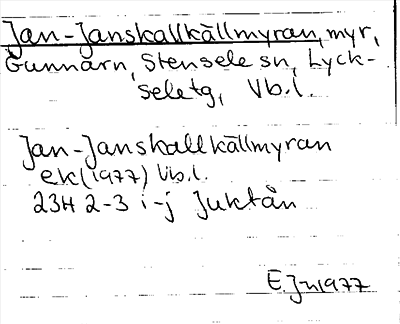 Jan-Janskallkällmyran, myr,
Gunnarn, Stensele sn, Lyck-
seletg, Vb.l.
Jan-Janskallkällmyran
ek (1977) Vb.l.
23H 2-3 i-j Juktån
E.Jn 1977